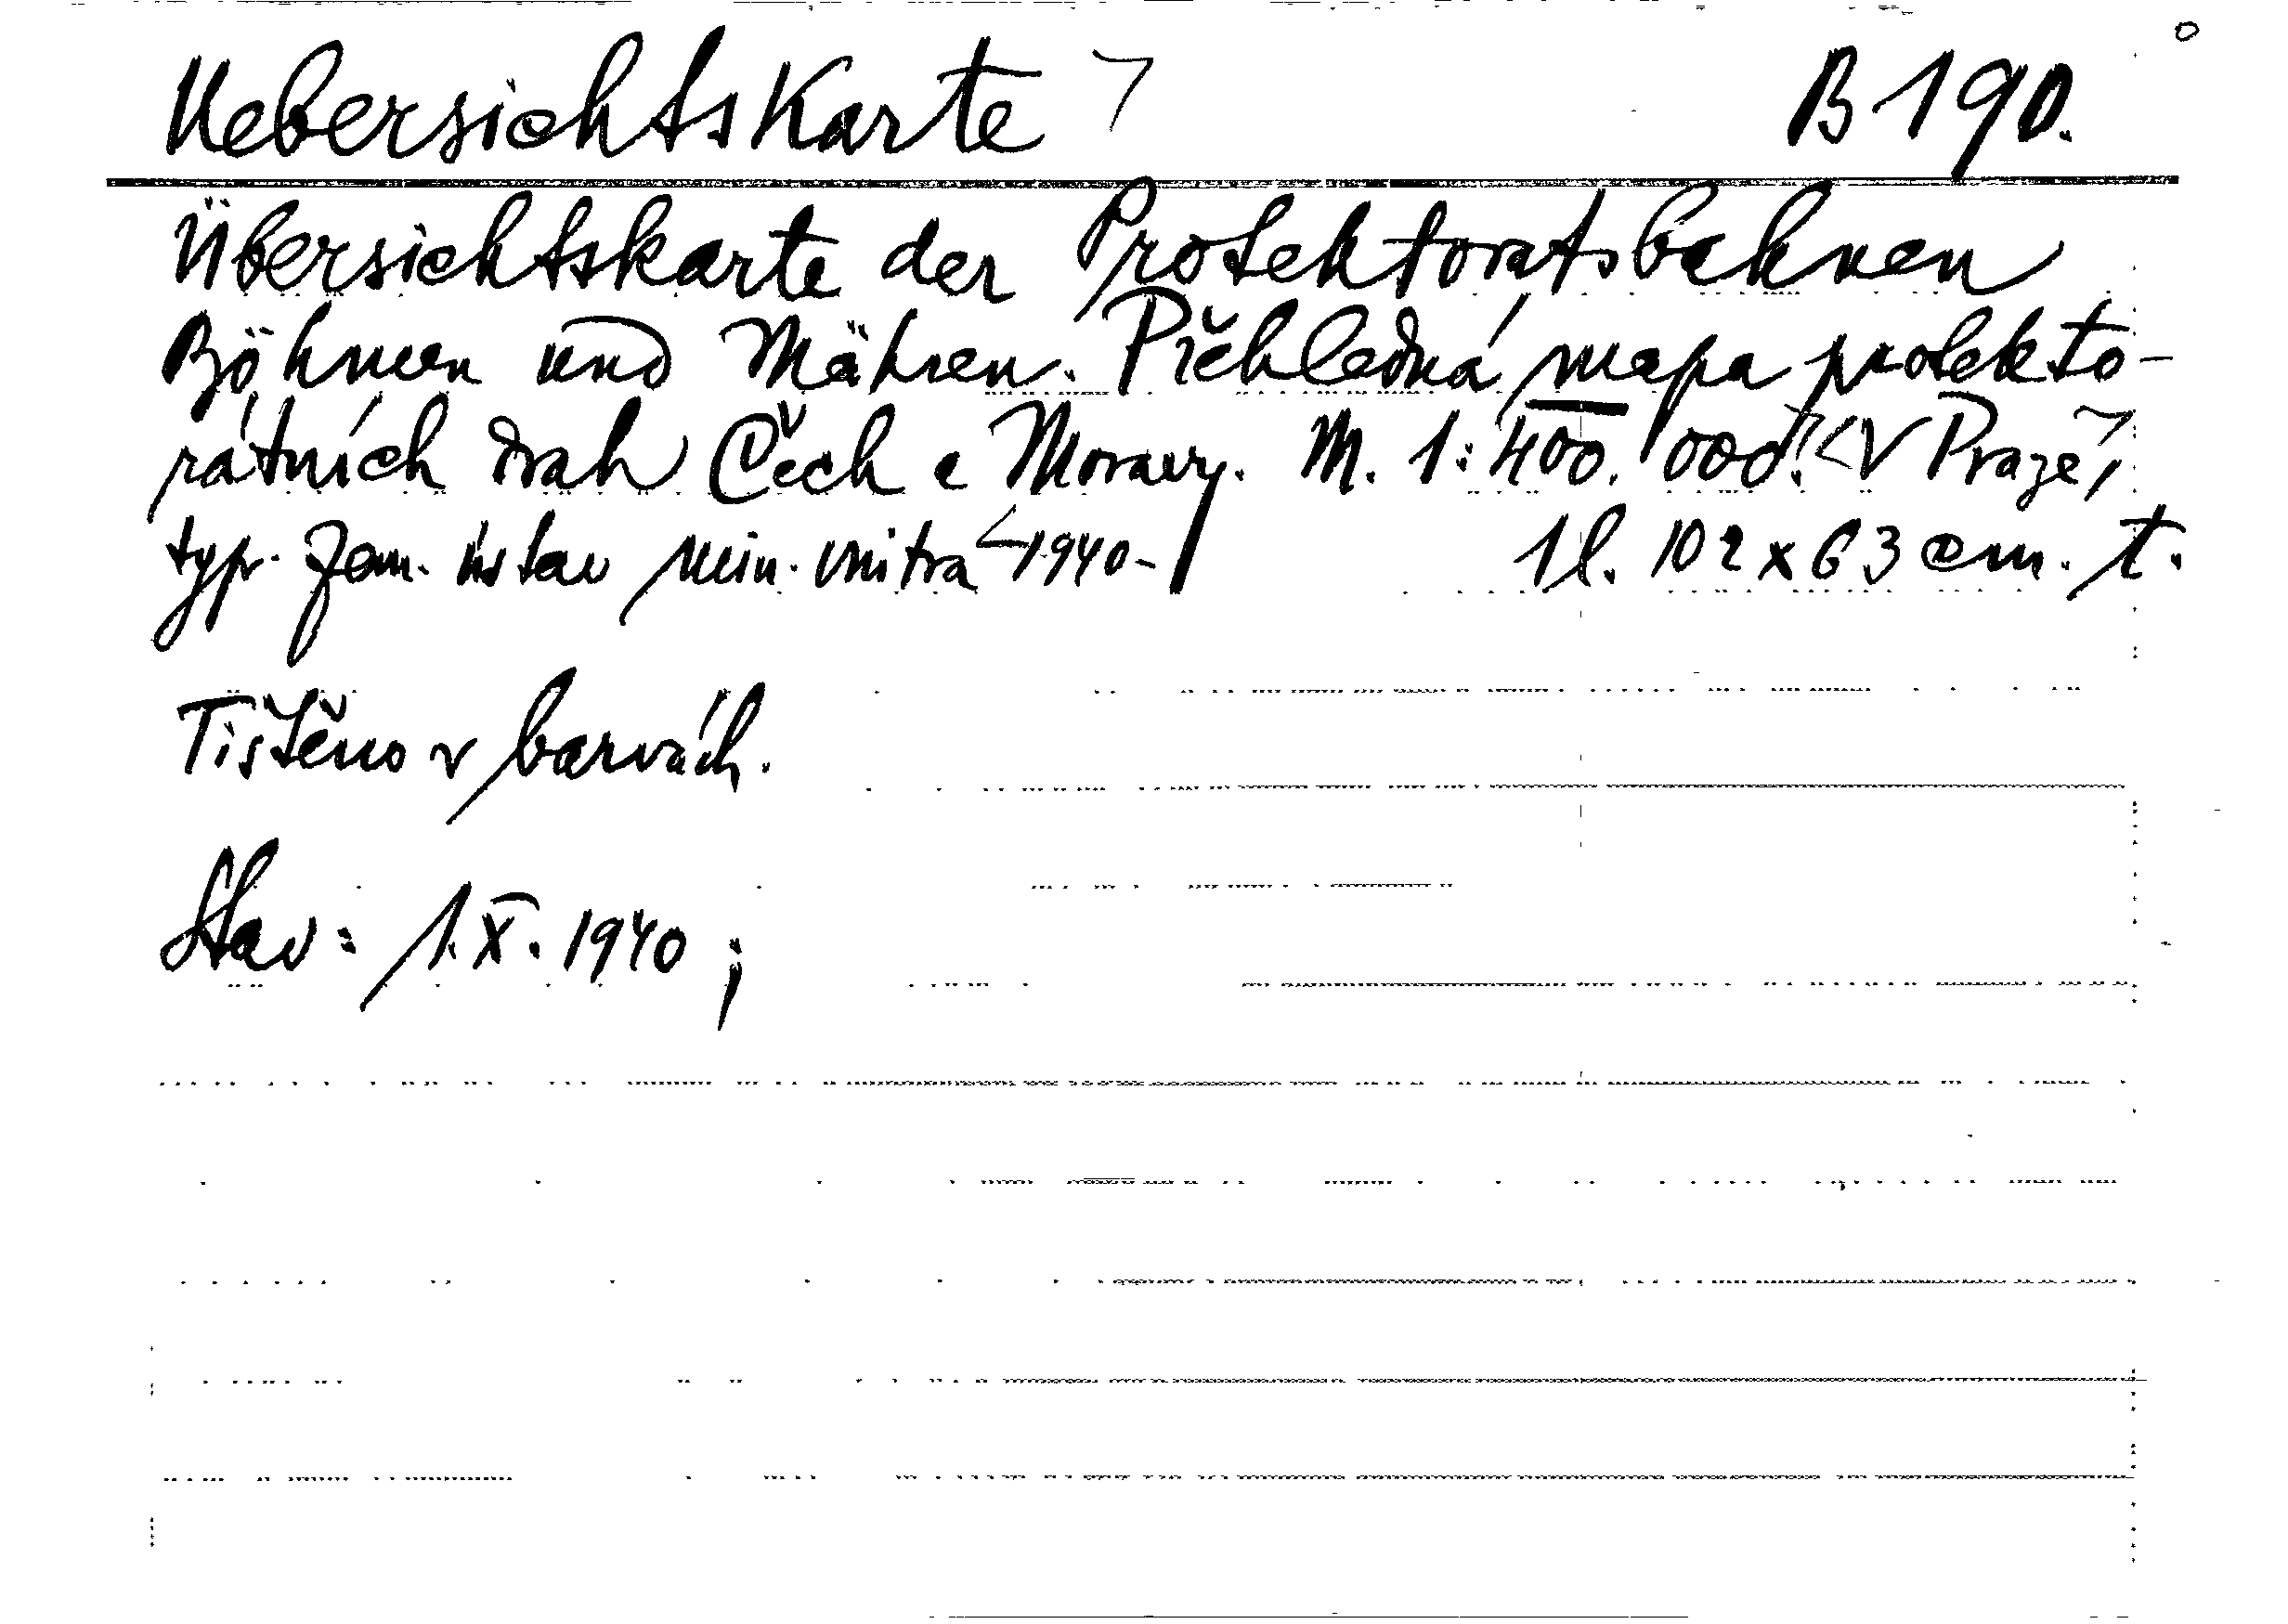 Uebersichtskarte B 190.
Übersichtskarte der Protektoratsbahnen
Böhmen und Mähren. Přehledná mapa protekto-
rátních drah Čech a Moravy. M. 1:400.000. V Praze,
typ. Zem. ústav min. vnitra 1940- 1 l. 102 x 63 cm. t.
Tištěno v barvách.
Stav: 1.X.1940;